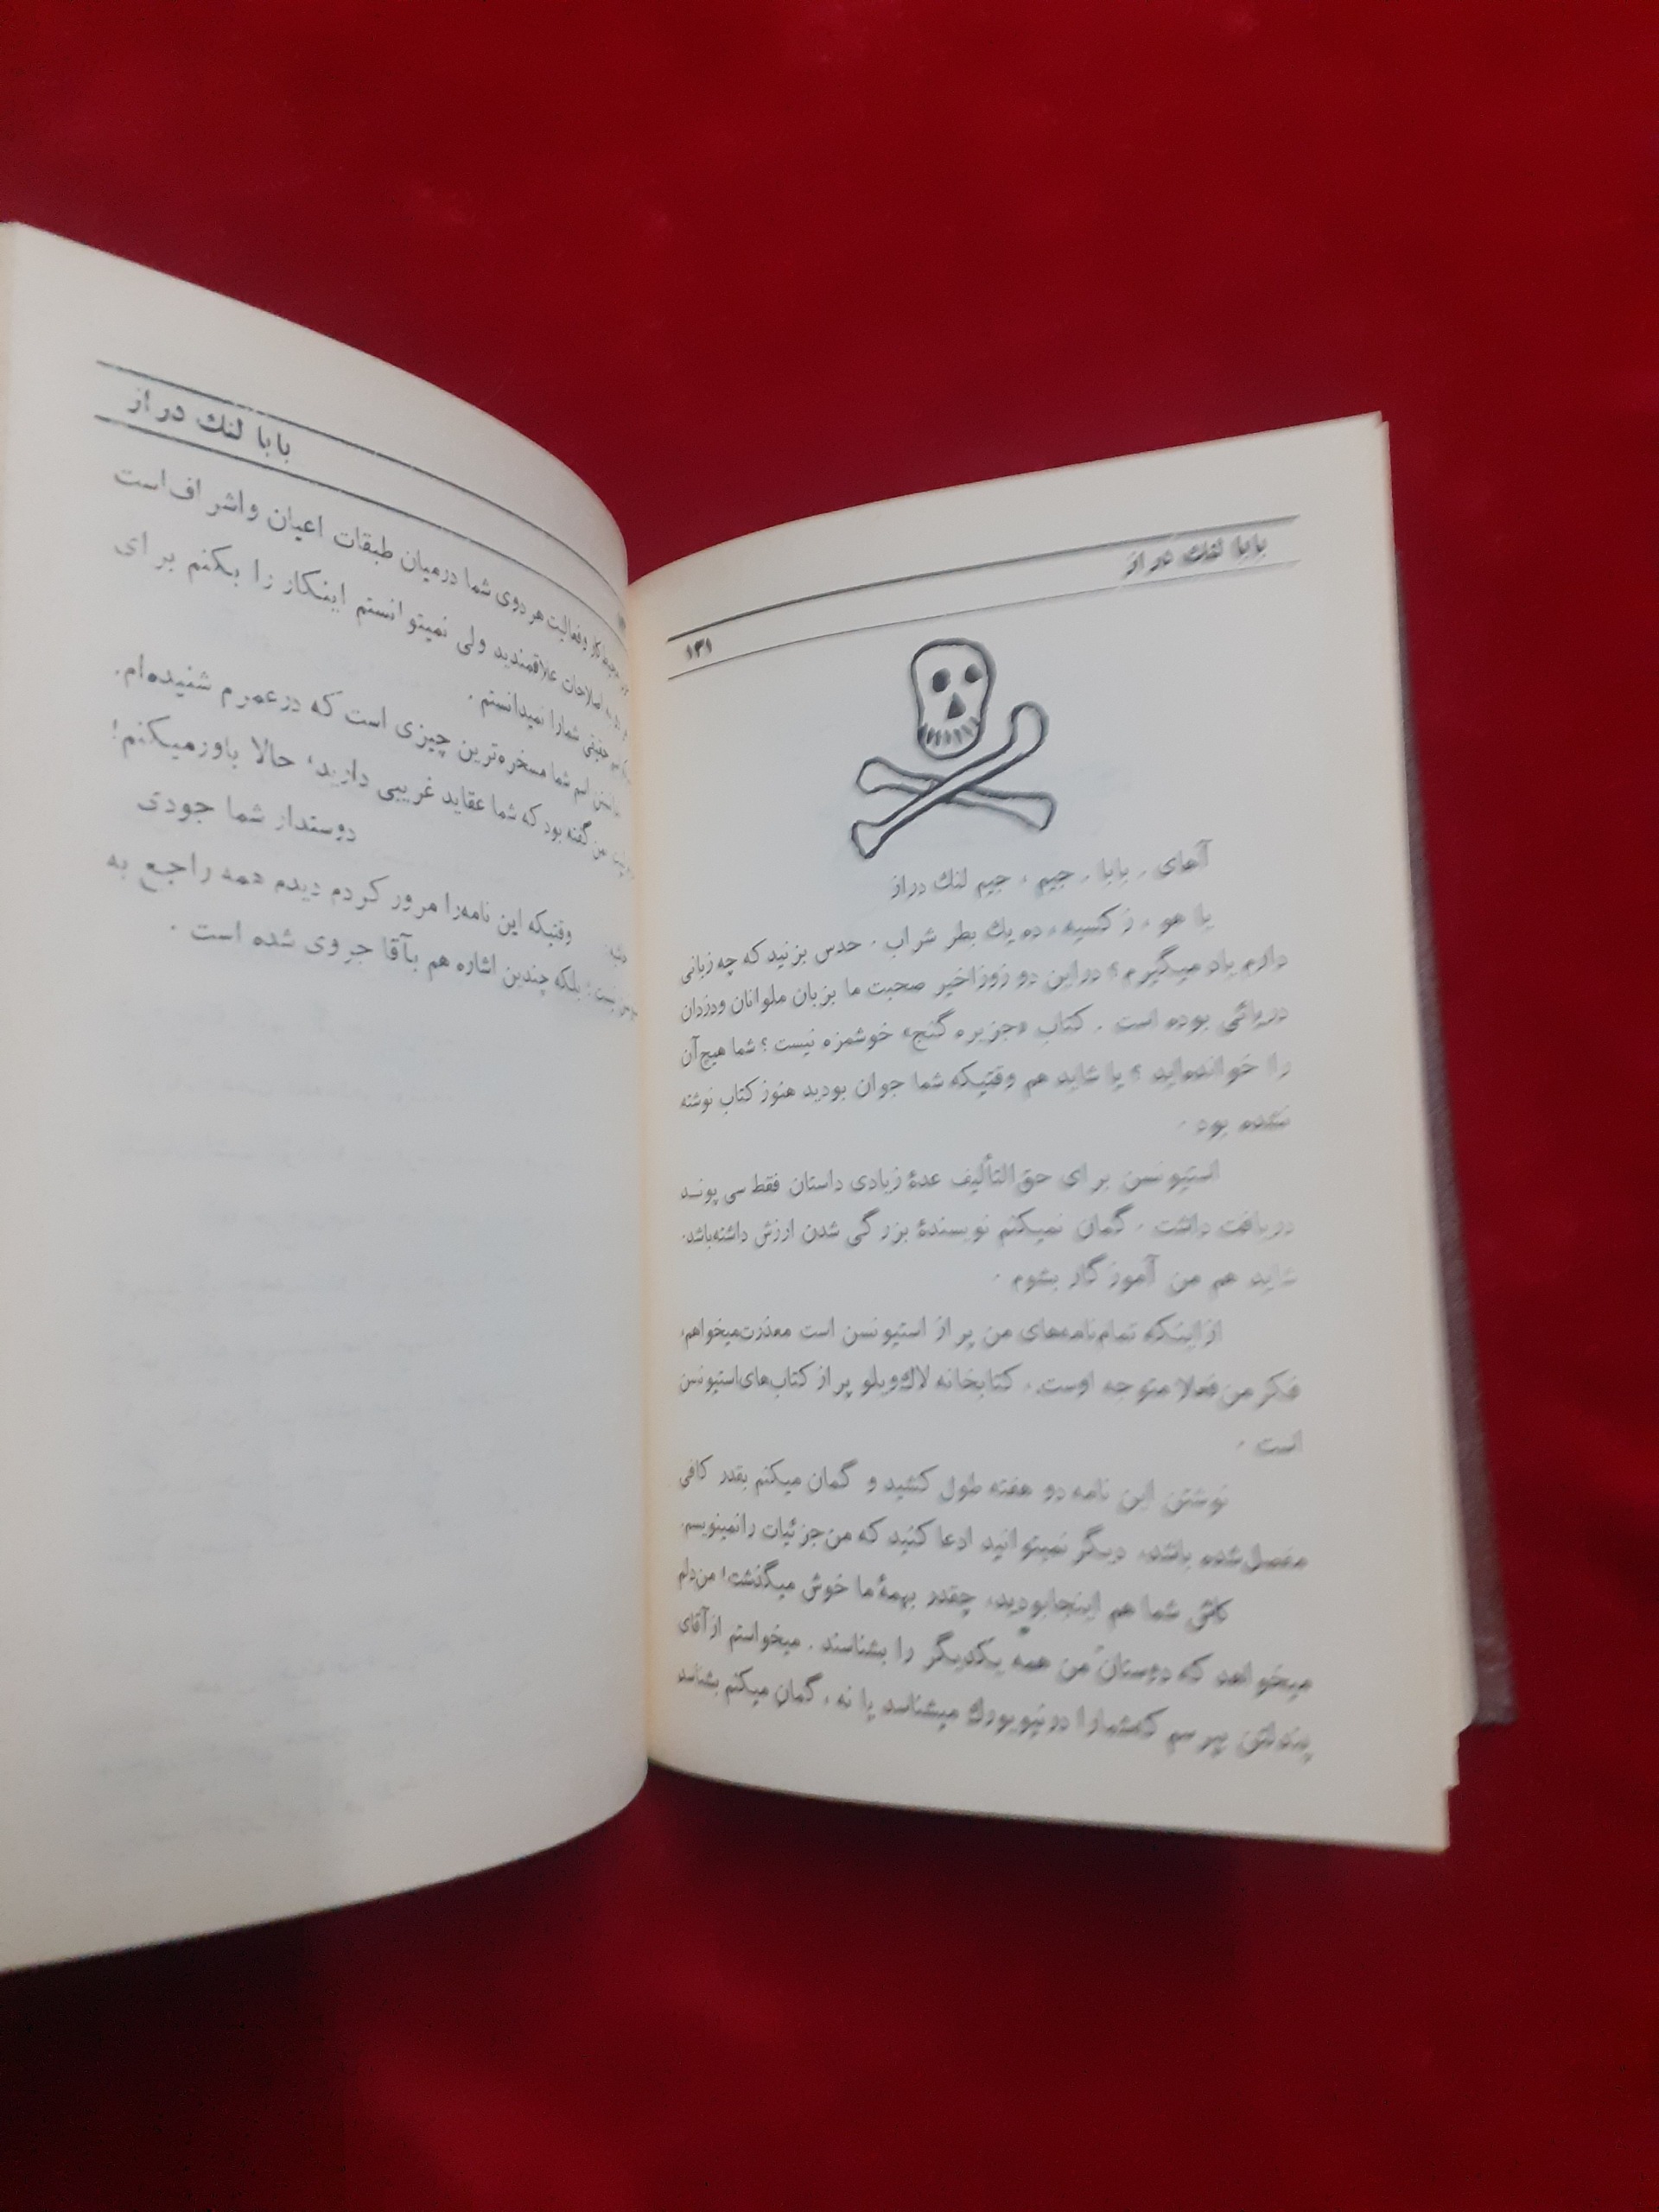 بابا لنك دراز
۱۳۱
آهای ، بابا ، جیم ، جیم لنك دراز
یا هو ، زکسیه ، ده یك بطر شراب . حدس بزنید که چه زبانی
دارم یاد میگیرم؟ دراین دو روزاخیر صحبت ما بزبان ملوانان ودزدان
دریائی بوده است . کتاب «جزیره گنج» خوشمزه نیست ؟ شما هیچ آن
را خوانده‌اید ؟ یا شاید هم وقتیکه شما جوان بودید هنوز کتاب نوشته
نشده بود .
استیونسن برای حق‌التألیف عدهٔ زیادی داستان فقط سی پوند
دریافت داشت . گمان نمیکنم نویسندهٔ بزرگی شدن ارزش داشته‌باشد.
شاید هم من آموزگار بشوم .
ازاینکه تمام‌نامه‌های من پر از استیونسن است معذرت‌میخواهم،
فکر من فعلا متوجه اوست ، کتابخانه لاك‌ویلو پر از کتاب‌های‌استیونسن
است .
نوشتن این نامه دو هفته طول کشید و گمان میکنم بقدر کافی
مفصل‌شده باشد، دیگر نمیتوانید ادعا کنید که من‌جزئیات رانمینویسم.
کاش شما هم اینجابودید، چقدر بهمهٔ ما خوش میگذشت! من‌دلم
میخواهد که دوستان من همه یکدیگر را بشناسند . میخواستم ازآقای
پندلتن بپرسم که‌شمارا درنیویورك میشناسد یا نه ، گمان میکنم بشناسد
بابا لنك دراز
کار وفعالیت هر دوی شما درمیان طبقات اعیان واشراف‌است
اصلاحات علاقمندید ولی نمیتوانستم اینکار را بکنم برای
حقیقی شمارا نمیدانستم .
اسم شما مسخره‌ترین چیزی است که درعمرم شنیده‌ام.
من گفته بود که شما عقاید غریبی دارید، حالا باورمیکنم!
دوستدار شما جودی
وقتیکه این نامه‌را مرور کردم دیدم همه راجع به
نیست؛ بلکه چندین اشاره هم بآقا جروی شده است .